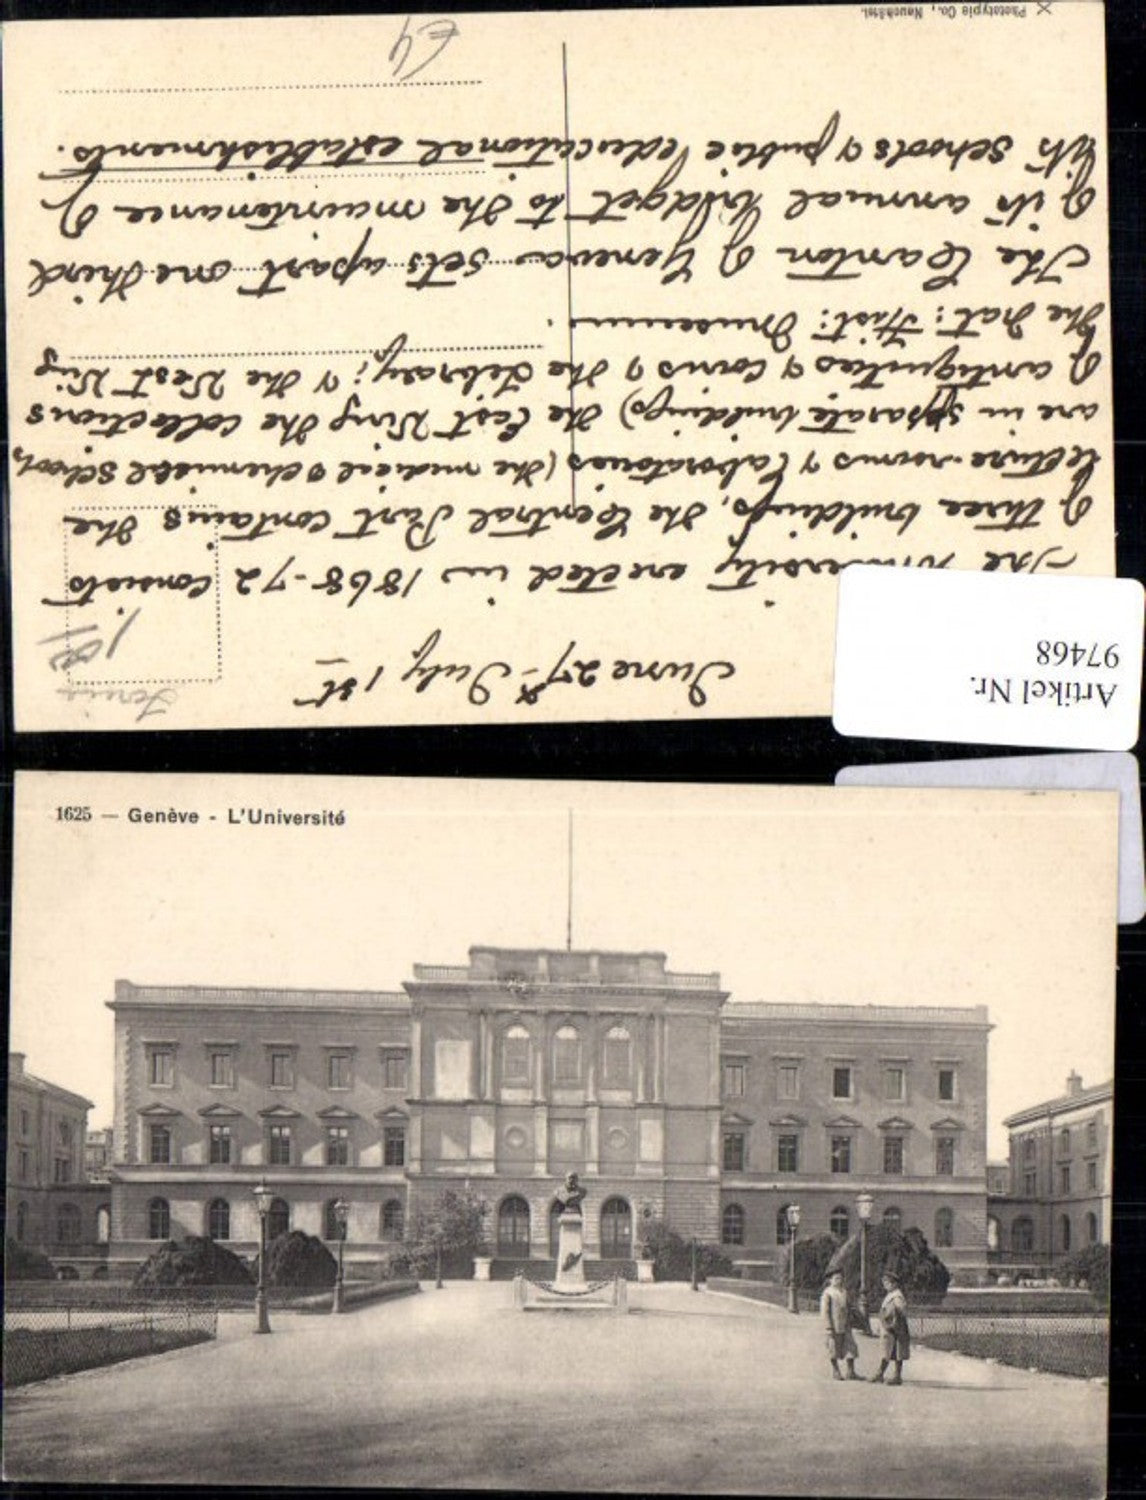 June 27 - July 1st
The University erected in 1868-72 consists
of three buildings, the Central Part contains the
lecture-rooms & laboratories (the medical & chemical schools,
are in separate buildings) the East Wing the collections
of antiquities & coins & the Library; & the West Wing
the Nat: Hist: Museum.
The Canton of Geneva sets apart one third
of its annual budget to the maintenance of
its schools & public educational establishments.
Phototypie Co., Neuchâtel.
Artikel Nr.
97468
1625 — Genève - L'Université